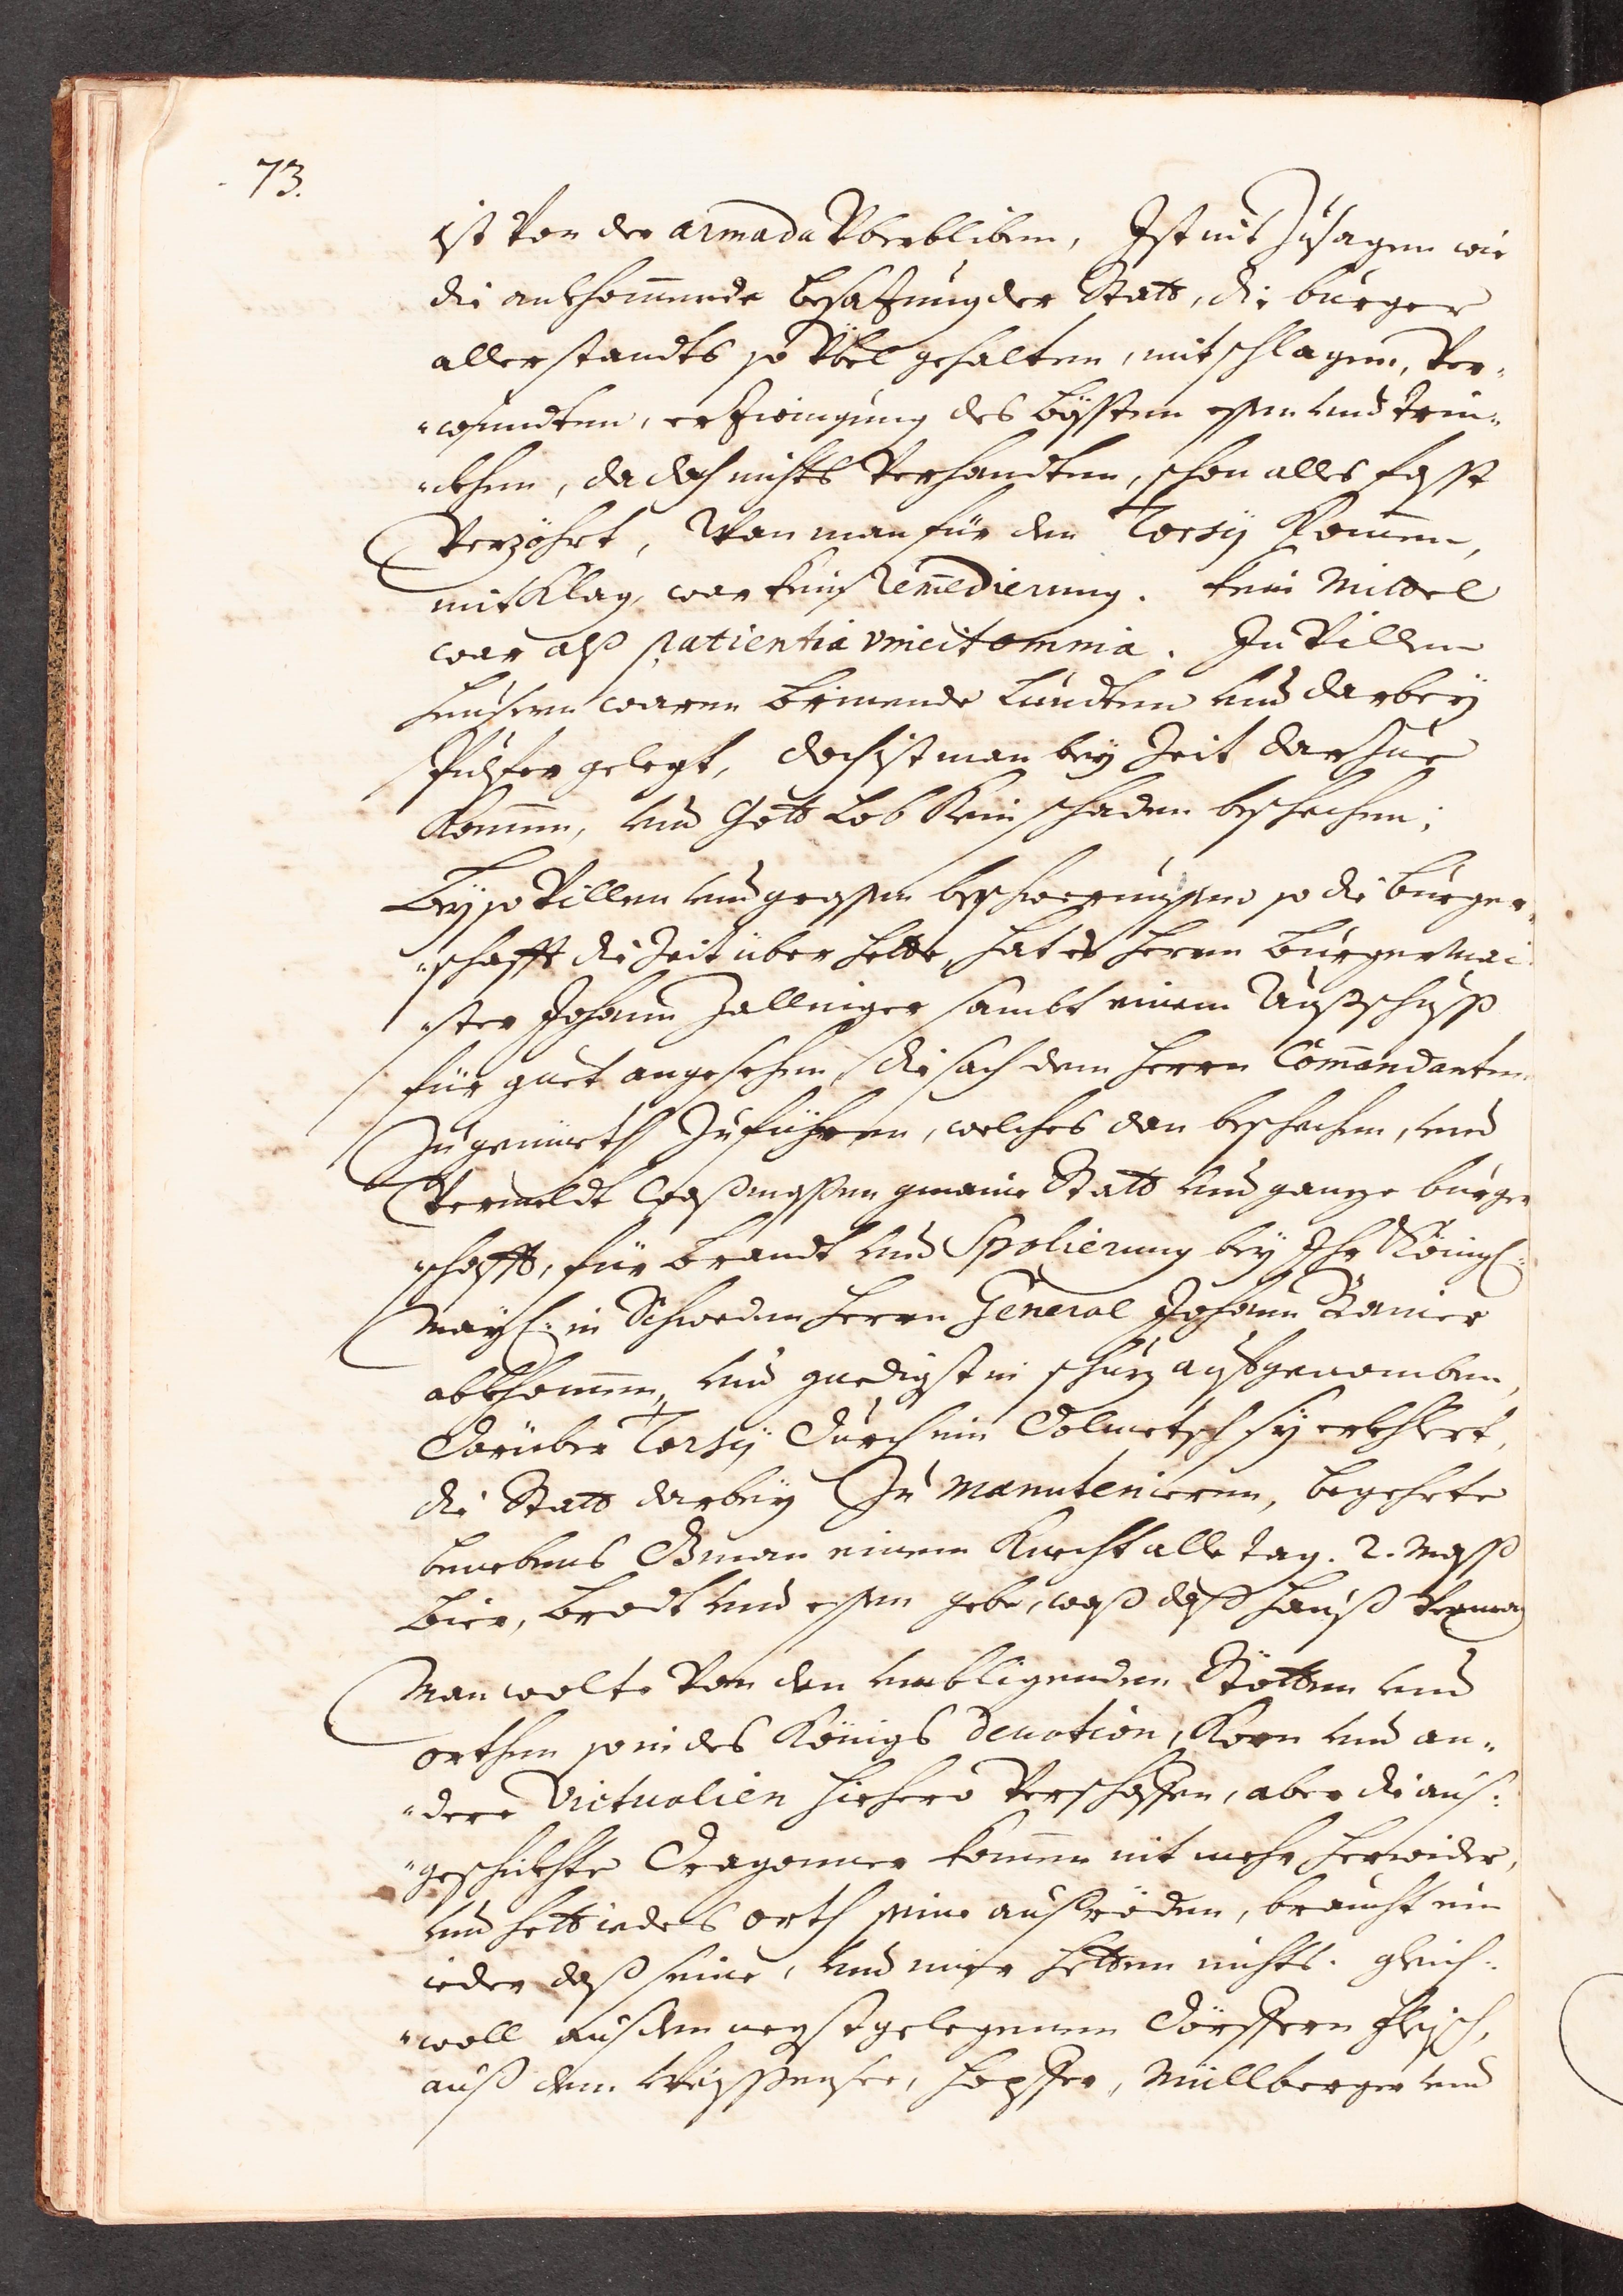 73.
ist von der armada Vberbliben, Ist nit Zusagen wie
die ankhommende besazung der Statt, die burger
aller standts so Vbel gehalten, mit schlagen, Ver-
wundten, erzwingung des bössten essen und trin-
ckhen, da doch nichts Verhandten, schon alles fasst
Verzöhrt, Wan man für den Torsÿ kommen,
mit Klag, war kein Remedierung. kein Mittel
war alß patientia vincit omnia. In Villen
heusern waren brinende Lundten und darbeÿ
Pulfer gelegt, doch ist man beÿ Zeit darzue
kommen, und Gott Lob kein schaden beschechen;
Beÿ so Villen und grossen beschwernussen so die burger-
schafft die Zeit über hette, hat es herrn burgermai-
ster Johann Zallinger sambt einem Außschuss
für guet angesehen, die sach dem herrn Commandanten
Zu gemüeth Zuführen, welches dan beschechen, und
Vermeldt wassmassen gmaine Statt und ganze burger
schafft, für brandt und Spolierung beÿ Ihr Königl:
Maÿl: in Schweden herrn General Johann Banier
abkhommen, und gnedigst in schuz aufgenomben,
Darüber Torsÿ durch ein Dolmetsch sy erkhlert,
die Statt darbeÿ Zu manutenieren, begehrte
benebens Das man einem Knecht alle tag. 2. Mass
bier, brodt und essen gebe, waß daß hauß Vermag
Man wolte Von den umbligenden Stötten und
orthen so in des Königs devotion, Korn und an-
dere Victualien hiehero Verschaffen, aber die aus-
geschickhte Dragoner kommen nit mehr herwider,
und hett iedes orth seine ausröden, braucht ein
ieder daß seine, und mier hetten nichts. gleich-
woll aus den negstgelegenen Dörffern fleisch,
auß dem Weyssensee, hopffer, Müllberger und